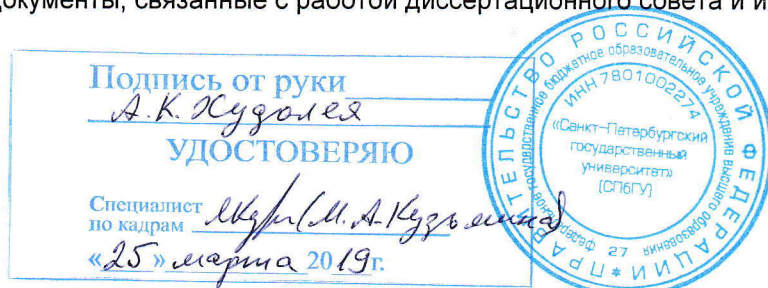 документы, связанные с работой диссертационного совета и и
Подпись от руки
А.К. Худолея
УДОСТОВЕРЯЮ
Специалист
по кадрам (М.А. Кузьмина)
«25» марта 2019г.
ПРАВИТЕЛЬСТВО РОССИЙСКОЙ ФЕДЕРАЦИИ *
Федеральное государственное бюджетное образовательное учреждение высшего образования
ИНН 7801002274
«Санкт-Петербургский
государственный
университет»
(СПбГУ)
27